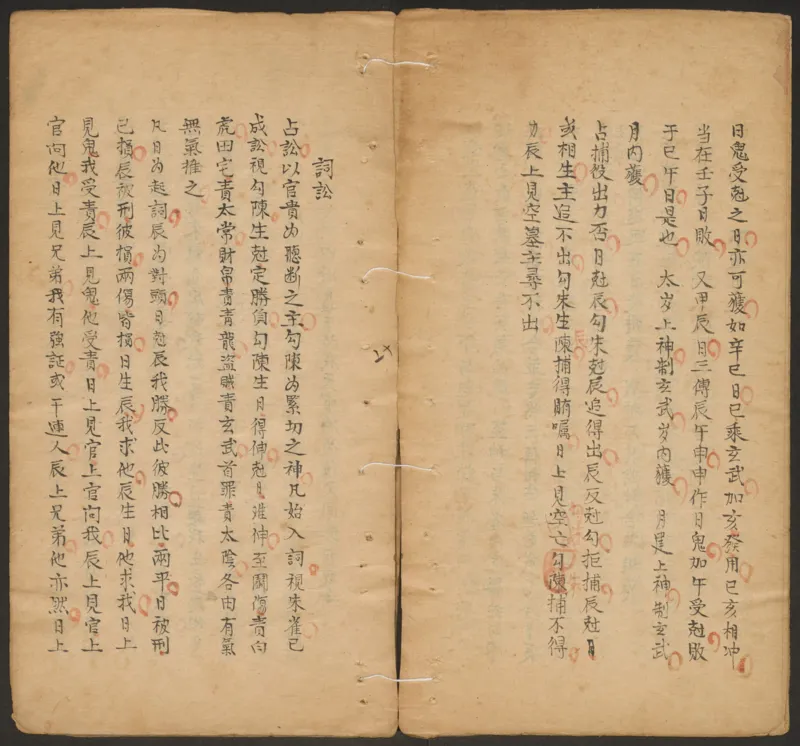 日鬼受尅之日亦可獲如辛巳日巳乘玄武加亥發用巳亥相冲
当在壬子日敗　又甲辰日三傳辰午申申作日鬼加午受尅敗
于巳午日是也　太岁上神制玄武岁内獲　月建上神制玄武
月内獲
占捕役出力否日尅辰勾朱尅辰追得出辰反尅勾拒捕辰尅日
或相生主追不出勾朱生陳捕得賄嘱日上見空亡勾陳捕不得
力辰上見空墓主尋不出
詞訟
占訟以官貴为聽断之主勾陳为累切之神凡始入詞視朱雀已
成訟視勾陳生尅定勝負勾陳生日得伸尅日难伸至鬬傷責白
虎田宅責太常財帛責青龍盜賊責玄武首罪責太陰各由有氣
無氣推之
凡日为起詞辰为對頭日尅辰我勝反此彼勝相比兩平日被刑
己損辰被刑彼損兩傷皆損日生辰我求他辰生日他求我日上
見鬼我受責辰上見鬼他受責日上見官上官向我辰上見官上
官向他日上見兄弟我有強証或干連人辰上兄弟他亦然日上